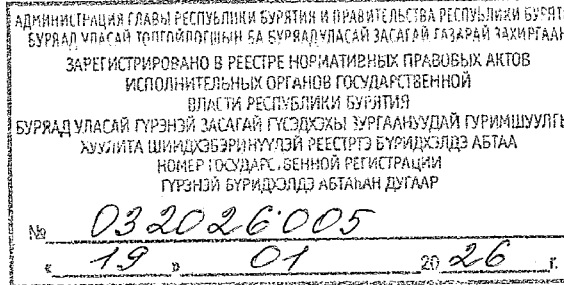 АДМИНИСТРАЦИЯ ГЛАВЫ РЕСПУБЛИКИ БУРЯТИЯ И ПРАВИТЕЛЬСТВА РЕСПУБЛИКИ БУРЯТ
БУРЯАД УЛАСАЙ ТОЛГОЙЛОГШЫН БА БУРЯАД УЛАСАЙ ЗАСАГАЙ ГАЗАРАЙ ЗАХИРГААН
ЗАРЕГИСТРИРОВАНО В РЕЕСТРЕ НОРМАТИВНЫХ ПРАВОВЫХ АКТОВ
ИСПОЛНИТЕЛЬНЫХ ОРГАНОВ ГОСУДАРСТВЕННОЙ
ВЛАСТИ РЕСПУБЛИКИ БУРЯТИЯ
БУРЯАД УЛАСАЙ ГҮРЭНЭЙ ЗАСАГАЙ ГҮСЭДХЭХЫ ЗУРГААНУУДАЙ ГУРИМШУУЛГЫ
ХУУЛИТА ШИИДХЭБЭРИНҮҮДЭЙ РЕЕСТРТЭ БҮРИДХЭЛДЭ АБТАА
НОМЕР ГОСУДАРСТВЕННОЙ РЕГИСТРАЦИИ
ГҮРЭНЭЙ БҮРИДХЭЛДЭ АБТАҺАН ДУГААР
№ 032026005
« 19 » 01 20 26 г.